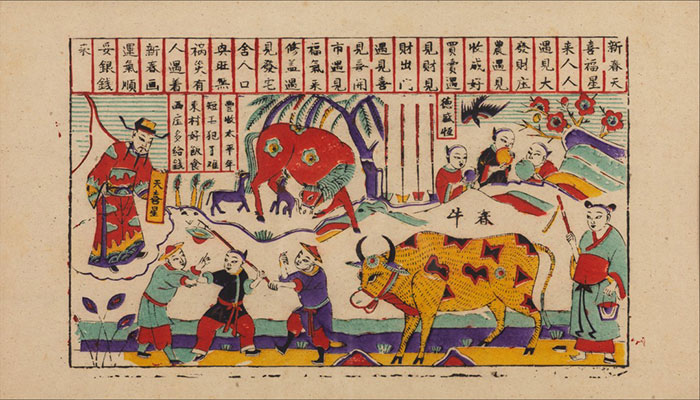 新春天
喜福星
来人人
遇見大
發財庄
農遇見
收成好
買賣遇
見財見
財出门
遇見喜
見喜開
市遇見
福氣來
修盖遇
見發宅
舍人口
與旺黑
祸災有
人遇着
新春画
運氣順
妥銀錢
来
德盛恒
豐收太平年
短工犯了难
東村好飯食
西庄多给錢
天喜星
春牛